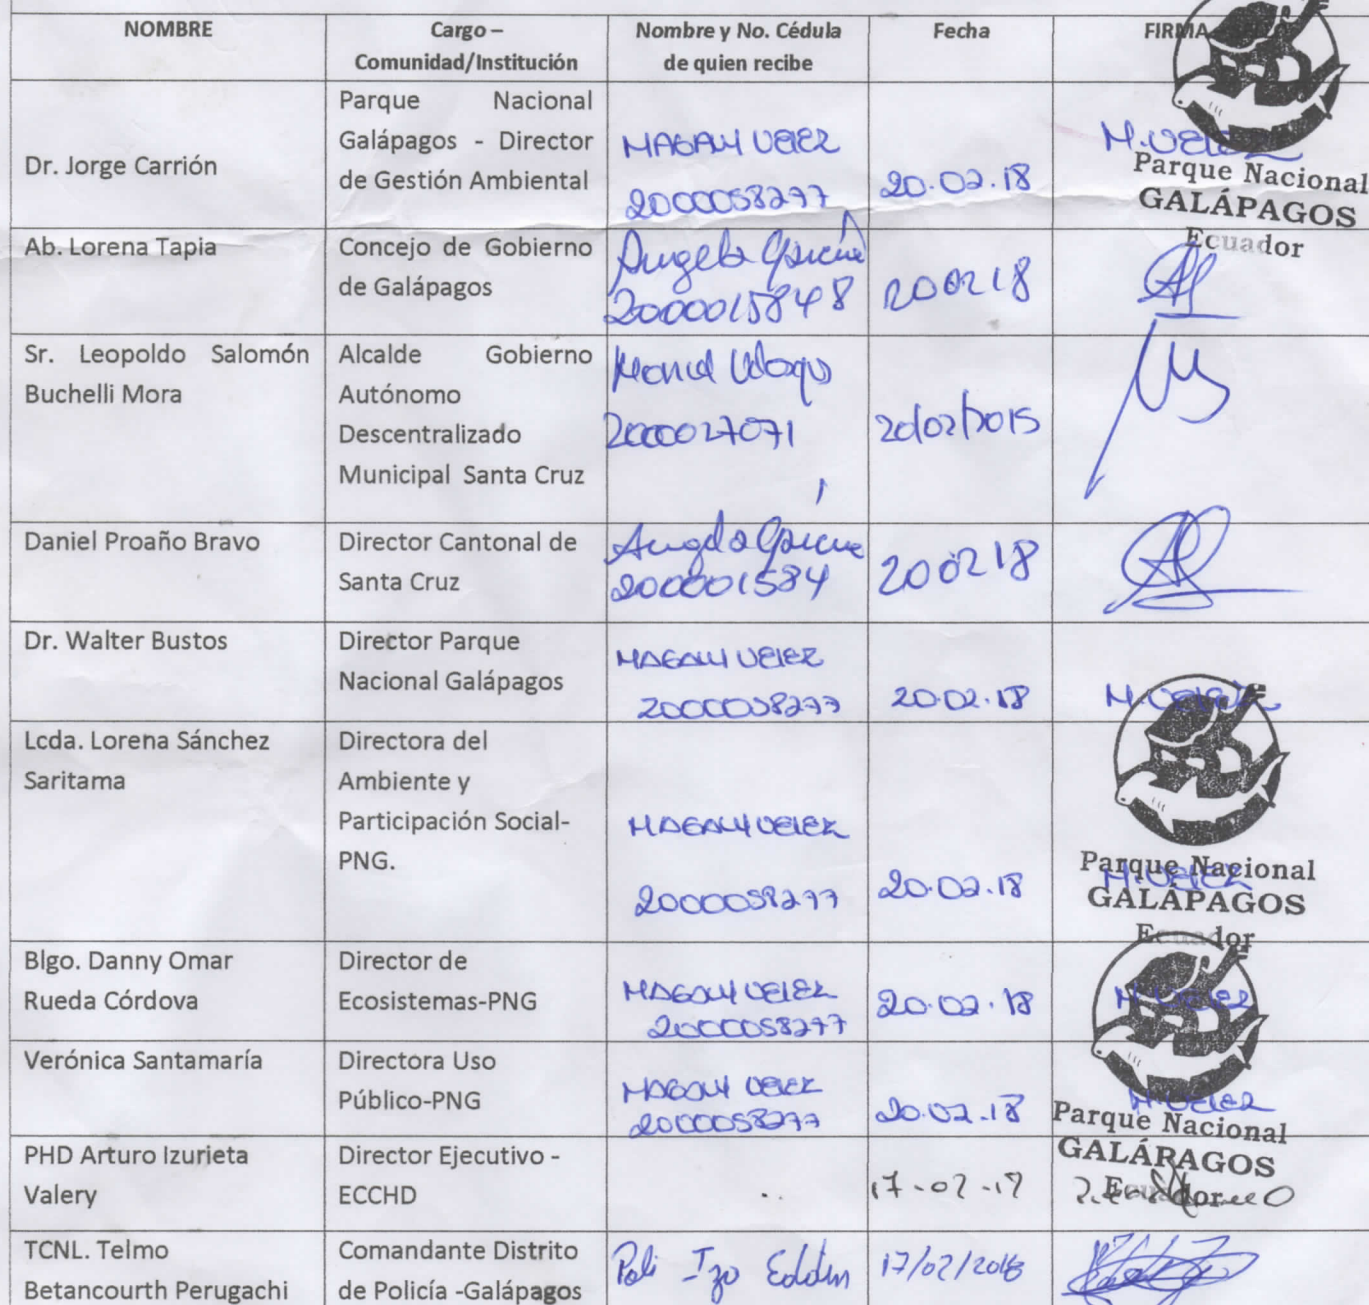 NOMBRE
Cargo –
Comunidad/Institución
Nombre y No. Cédula
de quien recibe
Fecha
FIRMA
Dr. Jorge Carrión
Parque Nacional
Galápagos - Director
de Gestión Ambiental
MAGALY VELEZ
2000058277
20.02.18
M. VELEZ
Parque Nacional
GALÁPAGOS
Ecuador
Ab. Lorena Tapia
Concejo de Gobierno
de Galápagos
Angela García
2000015848
200218
Sr. Leopoldo Salomón
Buchelli Mora
Alcalde Gobierno
Autónomo
Descentralizado
Municipal Santa Cruz
2000027071
20/02/2015
Daniel Proaño Bravo
Director Cantonal de
Santa Cruz
Angela García
200001584
200218
Dr. Walter Bustos
Director Parque
Nacional Galápagos
MAGALY VELEZ
2000058277
20.02.18
M. VELEZ
Lcda. Lorena Sánchez
Saritama
Directora del
Ambiente y
Participación Social-
PNG.
MAGALY VELEZ
2000058277
20.02.18
M. VELEZ
Parque Nacional
GALÁPAGOS
Ecuador
Blgo. Danny Omar
Rueda Córdova
Director de
Ecosistemas-PNG
MAGALY VELEZ
2000058277
20.02.18
M. VELEZ
Verónica Santamaría
Directora Uso
Público-PNG
MAGALY VELEZ
2000058277
20.02.18
M. VELEZ
Parque Nacional
GALÁPAGOS
Ecuador
PHD Arturo Izurieta
Valery
Director Ejecutivo -
ECCHD
TCNL. Telmo
Betancourth Perugachi
Comandante Distrito
de Policía -Galápagos
17/02/2018